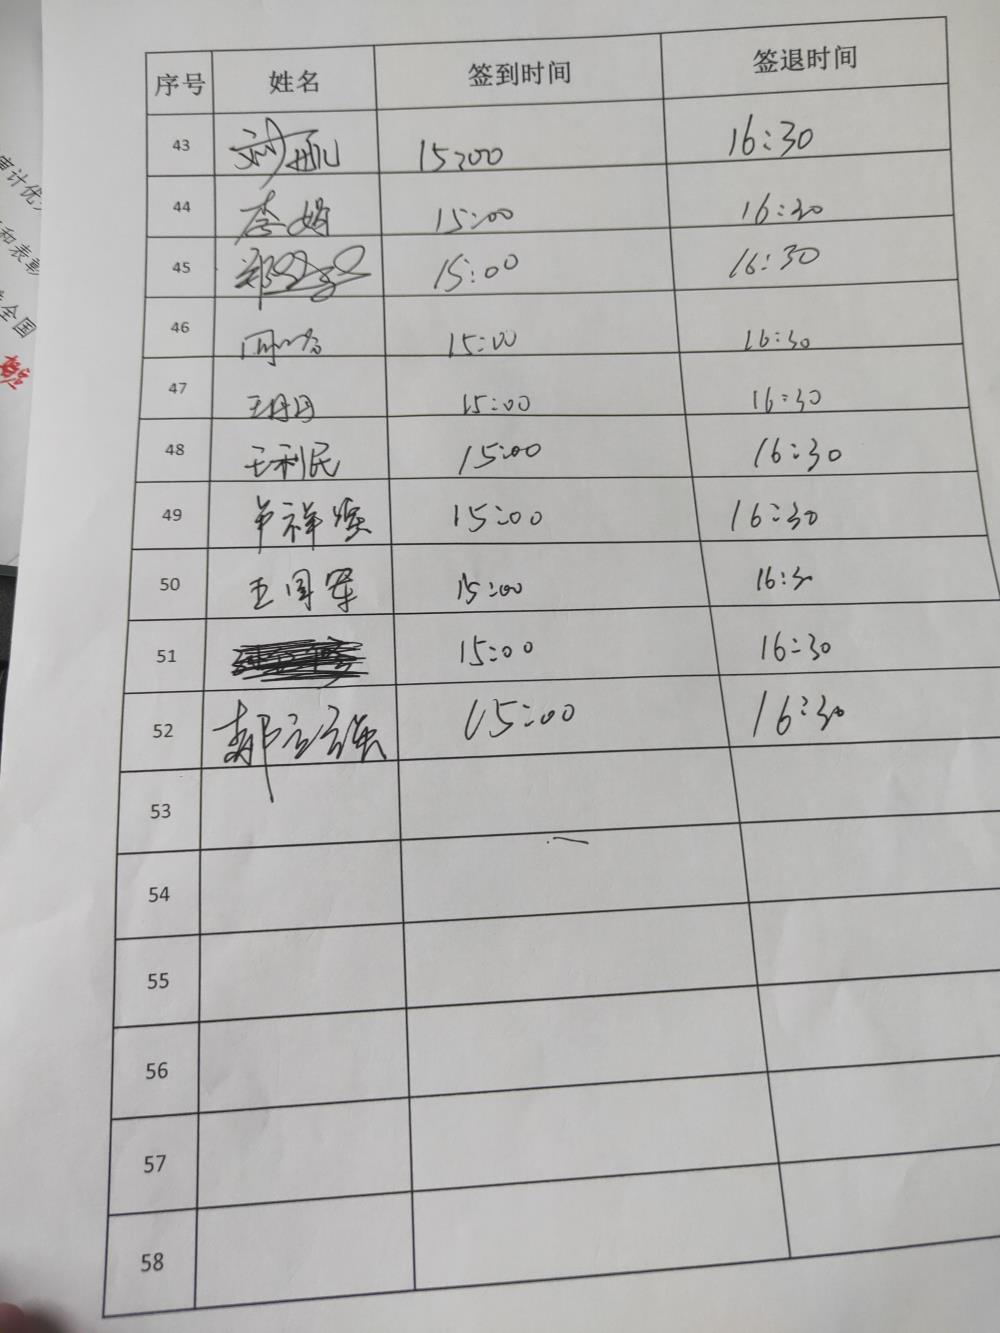 序号 姓名 签到时间 签退时间
43 15:00 16:30
44 李娟 15:00 16:30
45 郑 15:00 16:30
46 15:00 16:30
47 王丹丹 15:00 16:30
48 王利民 15:00 16:30
49 祥 15:00 16:30
50 王国军 15:00 16:30
51 15:00 16:30
52 郝 强 15:00 16:30
53
54
55
56
57
58
审计优
和表彰
全国